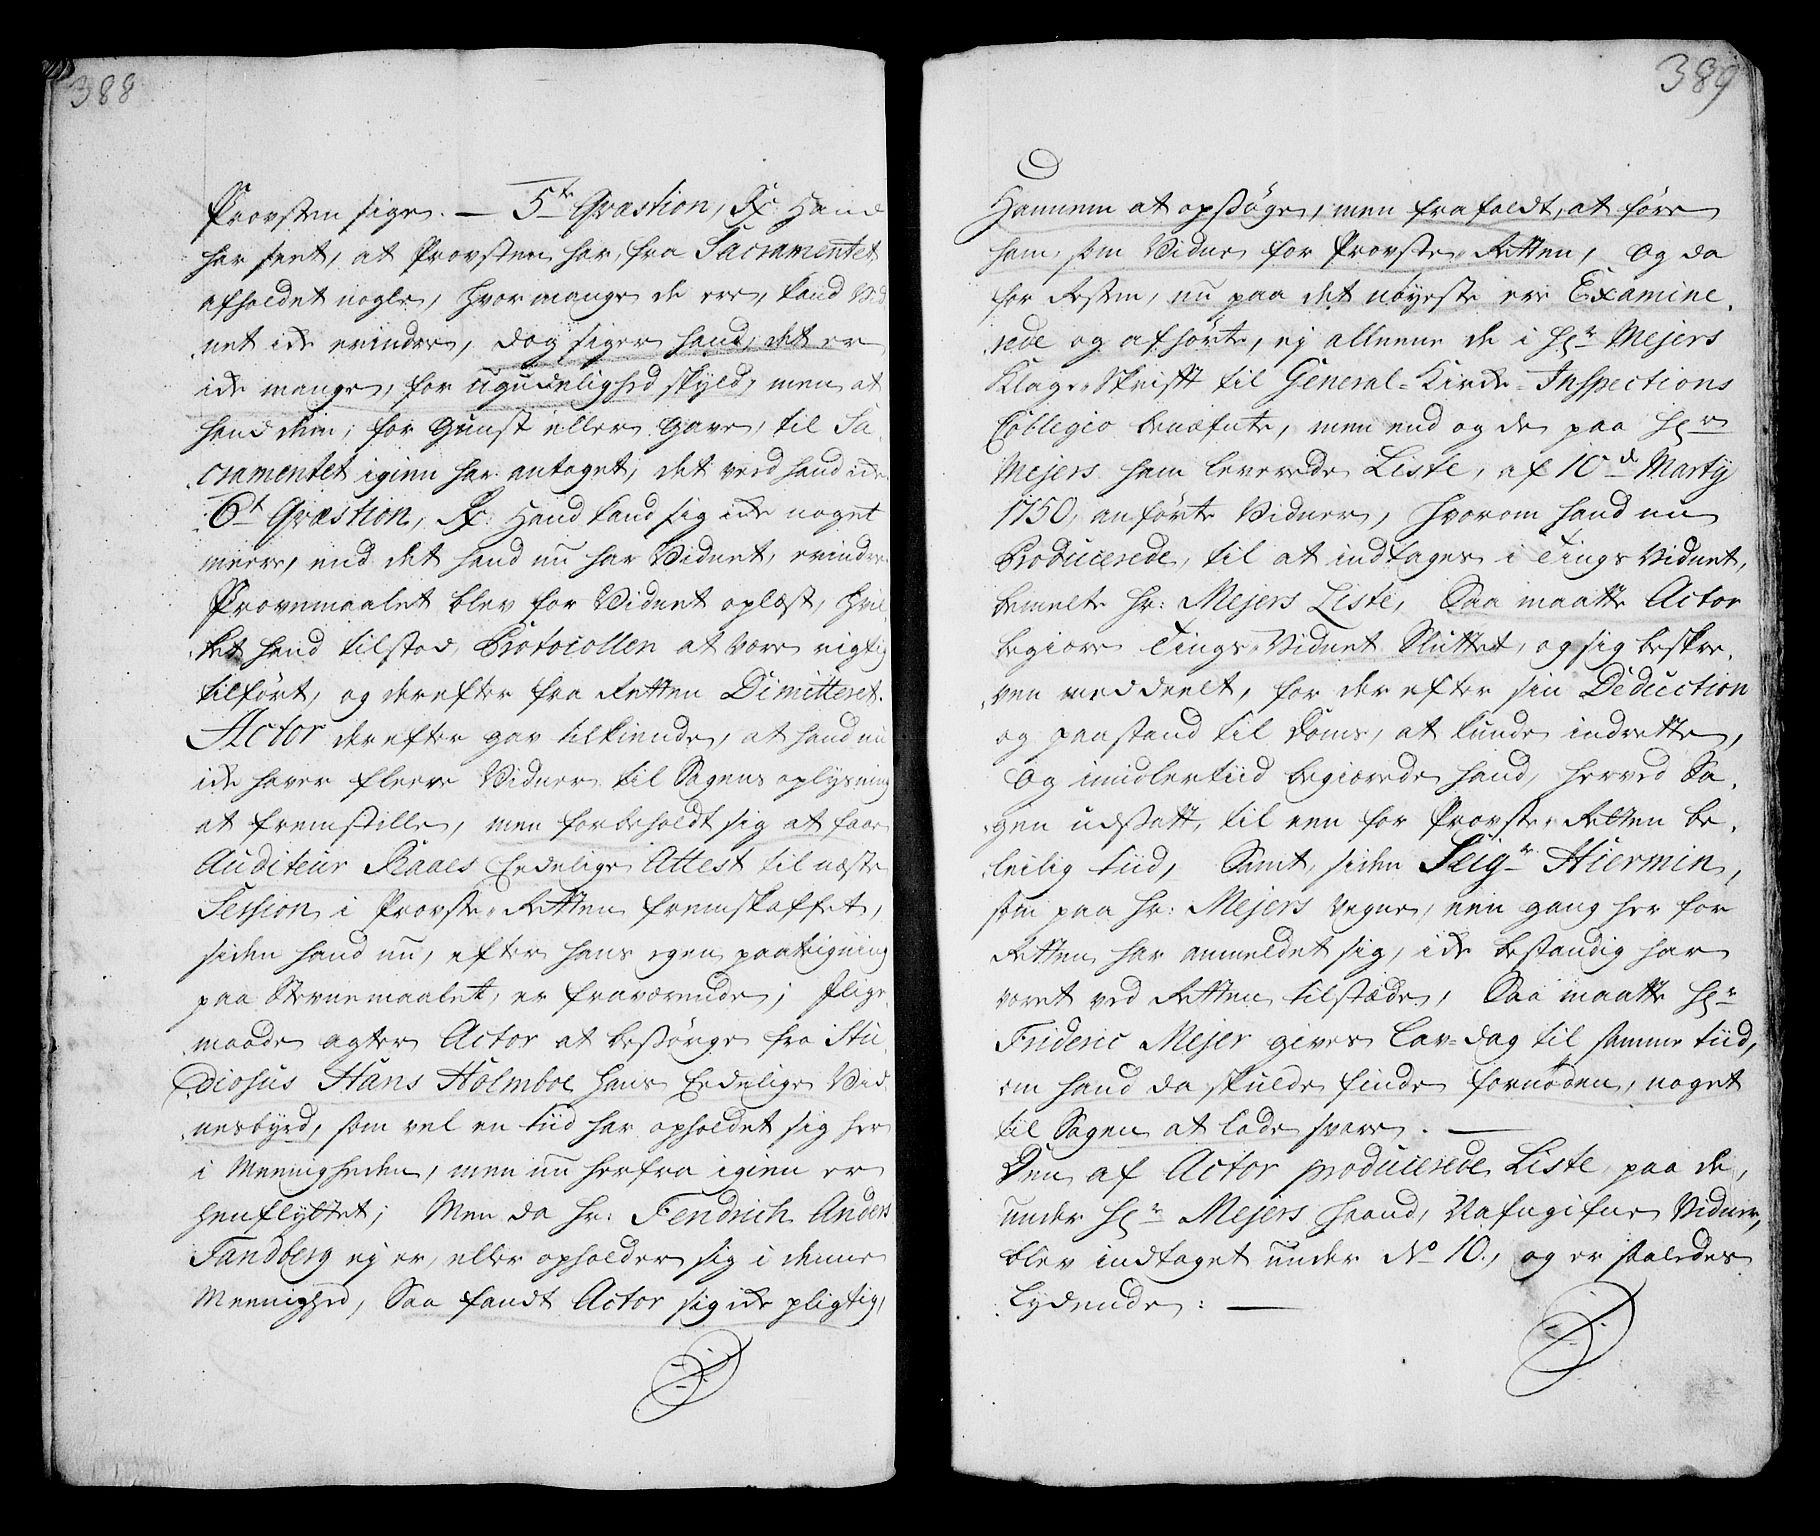 388
Provsten sige. — 5te Qvæstion, Rx: Hand
har seet, at Provsten har, fra Sacramentet
afholdet nogle, hvor mange de ere, kand Vid-
net icke erindre, dog siger hand, det er
icke mange, for ugudelighed skyld, men at
hand dem, for gunst eller gave, til Sa-
cramentet igien har antaget, det veed hand icke
6te Qvæstion, Rx: Hand kand sig icke noget
meere, end det hand nu har Vidnet, erindre
Provemaalet blev for Vidnet oplæst, hvil-
ket hand tilstod Protocollen at være rigtig
tilført, og derefter fra Retten Dimitteret.
Actor derefter gav tilkiende, at hand nu
icke haver fleere Vidner til Sagens oplysning
at fremstille, men forbeholdt sig at faae
Auditeur Raaes Eedelige Attest til næste
Session i Provste-Retten fremskaffet,
siden hand nu, efter hans egen paategning
paa Stevnemaalet, er fraværende; Lige-
maade agter Actor at besørge fra Stu-
diosus Hans Holmboe hans Eedelige Vid-
nesbyrd, som vel en tiid har opholdet sig her
i Meenigheden, men nu herfra igien er
henflyttet; Men da hr: Fendrich Anders
Sandberg ej er, eller opholder sig i denne
Meenighed, Saa fandt Actor sig icke pligtig,
389
Hannem at opsøge, men frafaldt, at føre
ham som Vidne for Provste-Retten, Og da
her Resten, nu paa det nøyeste ere Examine-
rede og afhørte, ej alleene de i Hr Mejers
Klage-Skrift til General-Kircke-Inspections
Collegio benæfnte, men end og de paa Hr
Mejers ham leverede Liste, af 10de Marty
1750, anførte Vidner, hvorom hand nu
Producerede, til at indtages i Tings Vidnet,
bemelte Hr: Mejers Liste, Saa maatte Actor
begiære Tings-Vidnet Sluttet, og sig beskre-
ven meddeelt, for derefter sin Deduction
og paastand til Doms, at kunde indrette,
Og imidlertiid begiærede hand, herved Sa-
gen udsatt, til een for Provste-Retten be-
leilig tiid, Samt, siden Seigr Hiermin,
som paa Hr: Mejers vegne, een gang her for
Retten har anmeldet sig, icke bestandig har
været ved Retten tilstæde, Saa maatte Hr
Frideric Mejer gives Lav-dag til samme tiid,
om hand da skulde finde fornøden, noget
til Sagen at lade svare. —
Den af Actor producerede Liste paa de,
under Hr Mejers Haand, Nafngifne Vidner,
blev indtaget under No 10., og er saaledes
Lydende: —